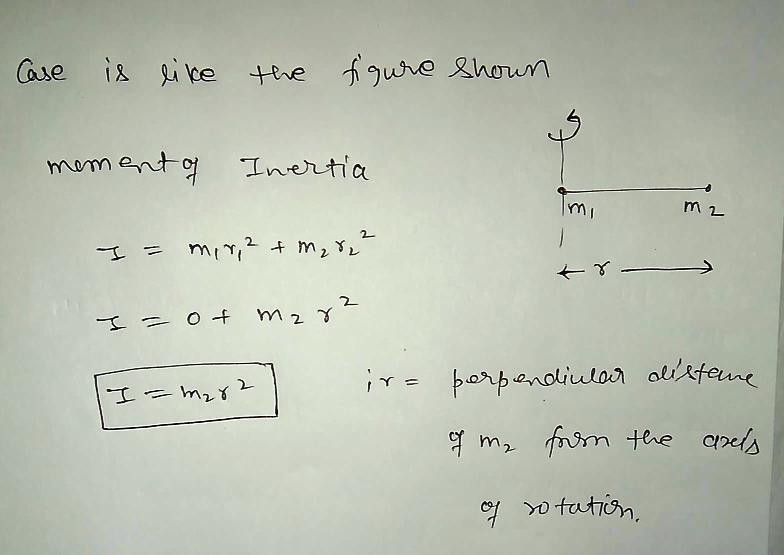 Case is like the figure shown
moment of Inertia
m₁ m₂
I = m₁r₁² + m₂r₂²
r
I = 0 + m₂r²
I = m₂r² ; r = perpendicular distance
of m₂ from the axis
of rotation.